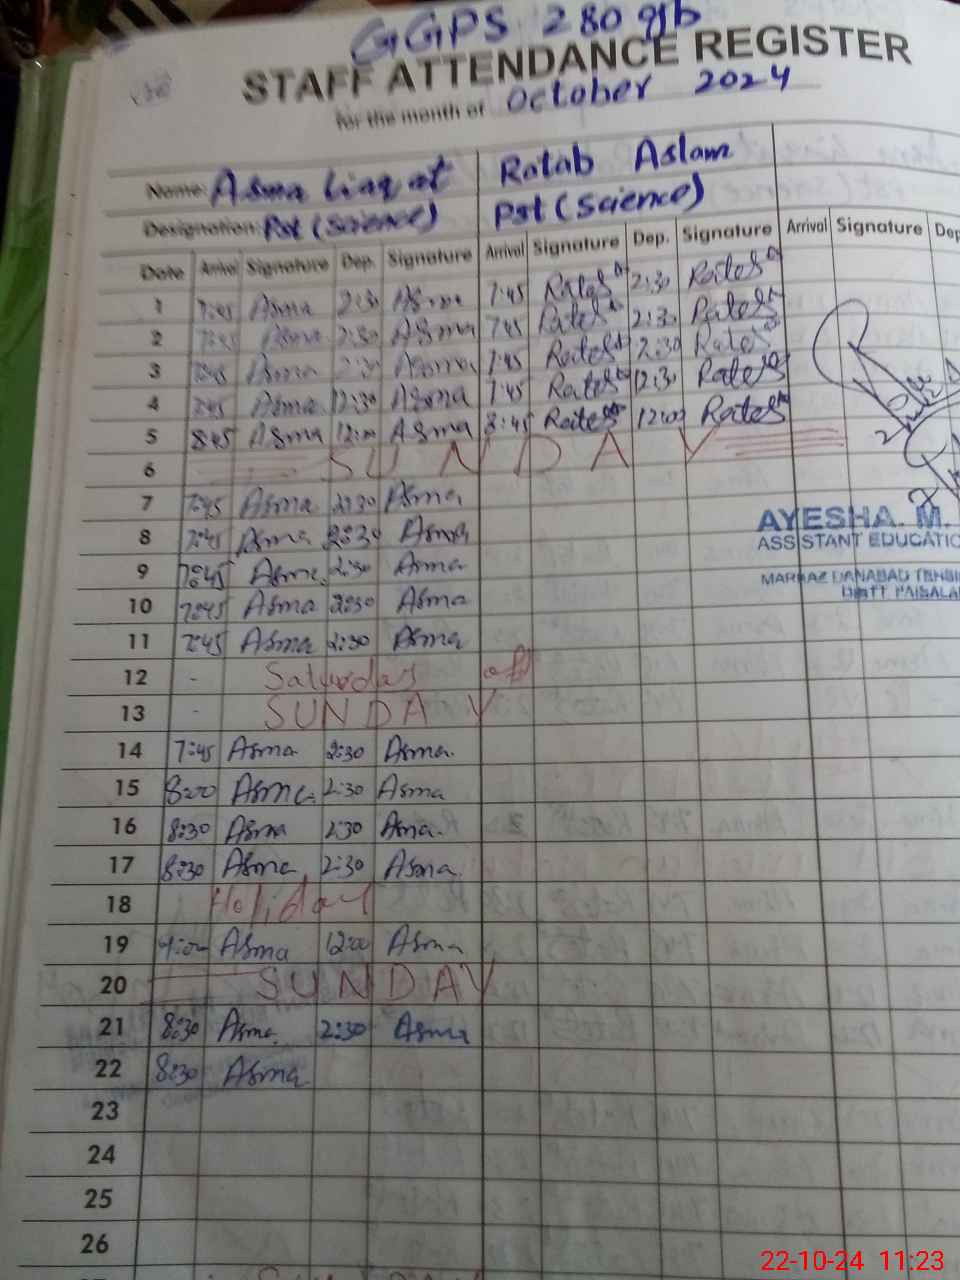 GGPS 280 gb
STAFF ATTENDANCE REGISTER
for the month of October 2024
Name: Asma Liaqat Ratab Aslam
Designation: Pst (science) Pst (science)
Date Arrival Signature Dep. Signature Arrival Signature Dep. Signature Arrival Signature Dep
1 7:45 Asma 2:30 Asma 7:45 2:30
2 7:45 Asma 2:30 Asma 7:45 2:30
3 7:45 Asma 2:30 Asma 7:45 2:30
4 7:45 Asma 12:30 Asma 7:45 12:30
5 8:45 Asma 12:00 Asma 8:45 12:00
6 SUNDAY
7 7:45 Asma 2:30 Asma
8 7:45 Asma 2:30 Asma
AYESHA. M.
ASSISTANT EDUCATIO
9 7:45 Asma 2:30 Asma
MARKAZ DANABAD TEHSI
DISTT FAISALA
10 7:45 Asma 2:30 Asma
11 7:45 Asma 2:30 Asma
12 - Saturday off
13 - SUNDAY
14 7:45 Asma 2:30 Asma
15 8:00 Asma 2:30 Asma
16 8:30 Asma 2:30 Asma
17 8:30 Asma 2:30 Asma
18 Holiday
19 Asma 12:00 Asma
20 SUNDAY
21 8:30 Asma 2:30 Asma
22 8:30 Asma
23
24
25
26
22-10-24 11:23